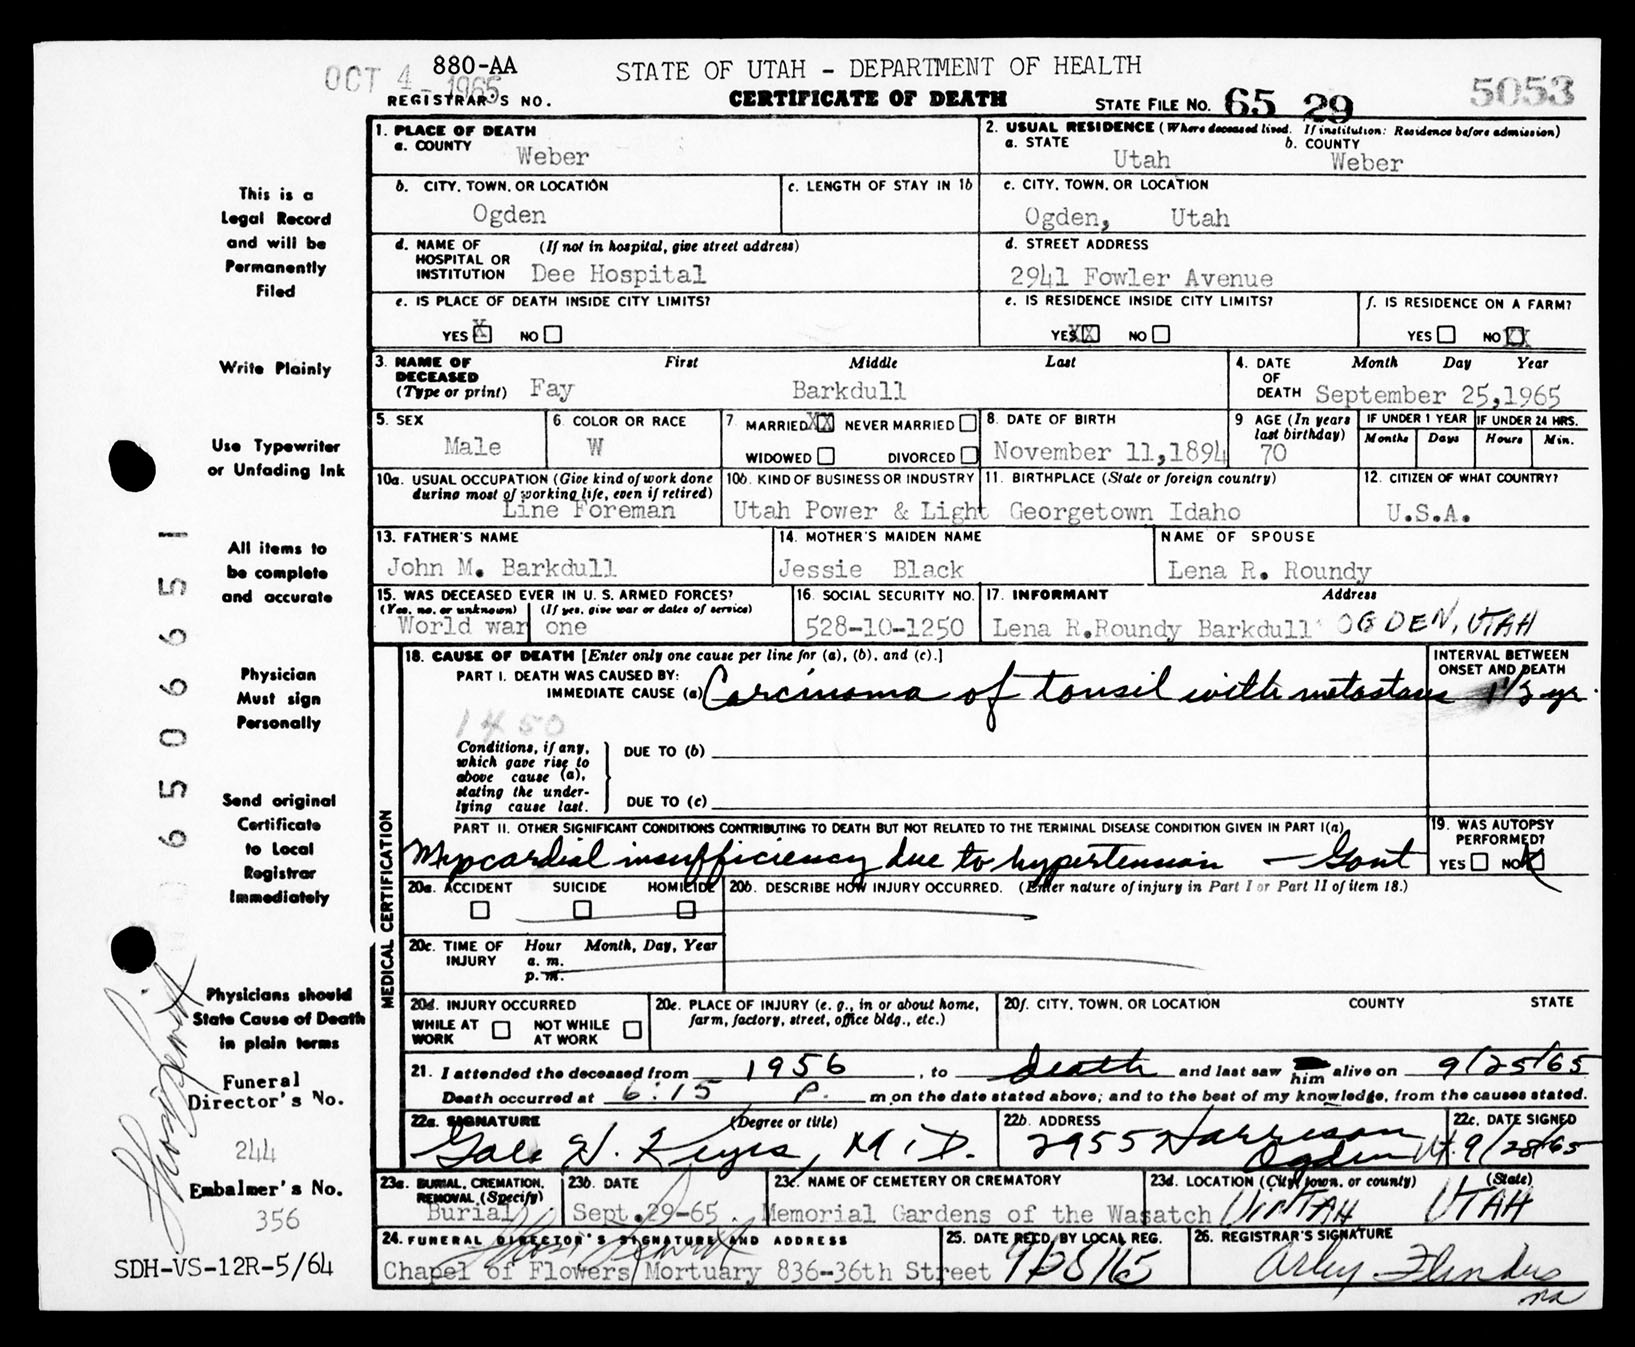 880-AA
OCT 4 1965
STATE OF UTAH - DEPARTMENT OF HEALTH
REGISTRAR'S NO.
CERTIFICATE OF DEATH
STATE FILE NO. 65 29
5053
1. PLACE OF DEATH
a. COUNTY
Weber
2. USUAL RESIDENCE (Where deceased lived. If institution: Residence before admission)
a. STATE
Utah
b. COUNTY
Weber
b. CITY, TOWN, OR LOCATION
Ogden
c. LENGTH OF STAY IN 1b
c. CITY, TOWN, OR LOCATION
Ogden, Utah
d. NAME OF HOSPITAL OR INSTITUTION (If not in hospital, give street address)
Dee Hospital
d. STREET ADDRESS
2941 Fowler Avenue
e. IS PLACE OF DEATH INSIDE CITY LIMITS?
YES X NO
e. IS RESIDENCE INSIDE CITY LIMITS?
YES XX NO
f. IS RESIDENCE ON A FARM?
YES NO XX
3. NAME OF DECEASED (Type or print)
First Middle Last
Fay Barkdull
4. DATE OF DEATH
Month Day Year
September 25,1965
5. SEX
Male
6. COLOR OR RACE
W
7. MARRIED XX NEVER MARRIED
WIDOWED DIVORCED
8. DATE OF BIRTH
November 11,1894
9 AGE (In years last birthday)
70
IF UNDER 1 YEAR
Months Days
IF UNDER 24 HRS.
Hours Min.
10a. USUAL OCCUPATION (Give kind of work done during most of working life, even if retired)
Line Foreman
10b. KIND OF BUSINESS OR INDUSTRY
Utah Power & Light
11. BIRTHPLACE (State or foreign country)
Georgetown Idaho
12. CITIZEN OF WHAT COUNTRY?
U.S.A.
13. FATHER'S NAME
John M. Barkdull
14. MOTHER'S MAIDEN NAME
Jessie Black
NAME OF SPOUSE
Lena R. Roundy
15. WAS DECEASED EVER IN U. S. ARMED FORCES?
(Yes, no, or unknown) (If yes, give war or dates of service)
World war one
16. SOCIAL SECURITY NO.
528-10-1250
17. INFORMANT Address
Lena R.Roundy Barkdull OGDEN, UTAH
MEDICAL CERTIFICATION
18. CAUSE OF DEATH [Enter only one cause per line for (a), (b), and (c).]
PART I. DEATH WAS CAUSED BY:
IMMEDIATE CAUSE (a) Carcinoma of tonsil with metastasis
INTERVAL BETWEEN ONSET AND DEATH
1 1/2 yr.
1450
Conditions, if any, which gave rise to above cause (a), stating the underlying cause last.
DUE TO (b)
DUE TO (c)
PART II. OTHER SIGNIFICANT CONDITIONS CONTRIBUTING TO DEATH BUT NOT RELATED TO THE TERMINAL DISEASE CONDITION GIVEN IN PART I(a)
Myocardial insufficiency due to hypertension - Gout
19. WAS AUTOPSY PERFORMED?
YES NO X
20a. ACCIDENT SUICIDE HOMICIDE
20b. DESCRIBE HOW INJURY OCCURRED. (Enter nature of injury in Part I or Part II of item 18.)
20c. TIME OF INJURY
Hour Month, Day, Year
a. m.
p. m.
20d. INJURY OCCURRED
WHILE AT WORK NOT WHILE AT WORK
20e. PLACE OF INJURY (e. g., in or about home, farm, factory, street, office bldg., etc.)
20f. CITY, TOWN, OR LOCATION COUNTY STATE
21. I attended the deceased from 1956, to Death and last saw him alive on 9/25/65
Death occurred at 6:15 P. m on the date stated above; and to the best of my knowledge, from the causes stated.
22a. SIGNATURE (Degree or title)
Gale H. Keyes, M.D.
22b. ADDRESS
2955 Harrison
Ogden Ut.
22c. DATE SIGNED
9/28/65
23a. BURIAL, CREMATION, REMOVAL (Specify)
Burial
23b. DATE
Sept.29-65.
23c. NAME OF CEMETERY OR CREMATORY
Memorial Gardens of the Wasatch
23d. LOCATION (City, town, or county) (State)
UINTAH UTAH
24. FUNERAL DIRECTOR'S SIGNATURE AND ADDRESS
Chapel of Flowers Mortuary 836-36th Street
25. DATE REC'D. BY LOCAL REG.
9/28/65
26. REGISTRAR'S SIGNATURE
Arley Flinders
na
This is a
Legal Record
and will be
Permanently
Filed
Write Plainly
Use Typewriter
or Unfading Ink
All items to
be complete
and accurate
Physician
Must sign
Personally
Send original
Certificate
to Local
Registrar
Immediately
Physicians should
State Cause of Death
in plain terms
Funeral
Director's No.
244
Embalmer's No.
356
SDH-VS-12R-5/64
6506651